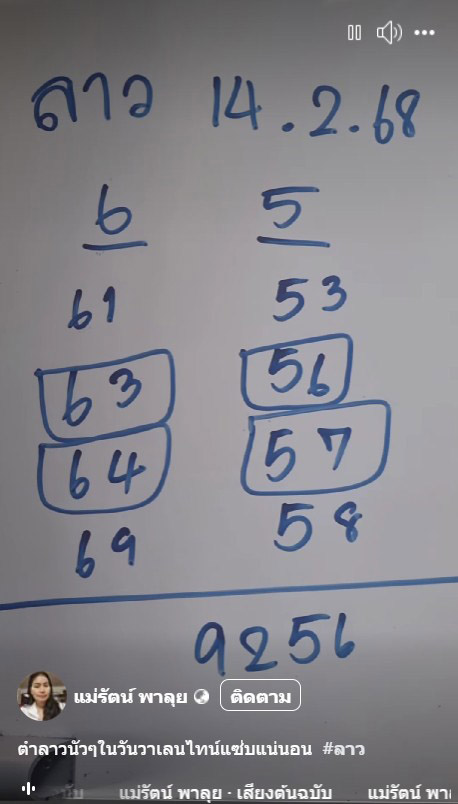 ลาว 14.2.68
6 5
61 53
63 56
64 57
69 58
9256
แม่รัตน์ พาลุย ติดตาม
ตำลาวนัวๆในวันวาเลนไทน์แซ่บแน่นอน #ลาว
แม่รัตน์ พาลุย · เสียงต้นฉบับ แม่รัตน์ พา